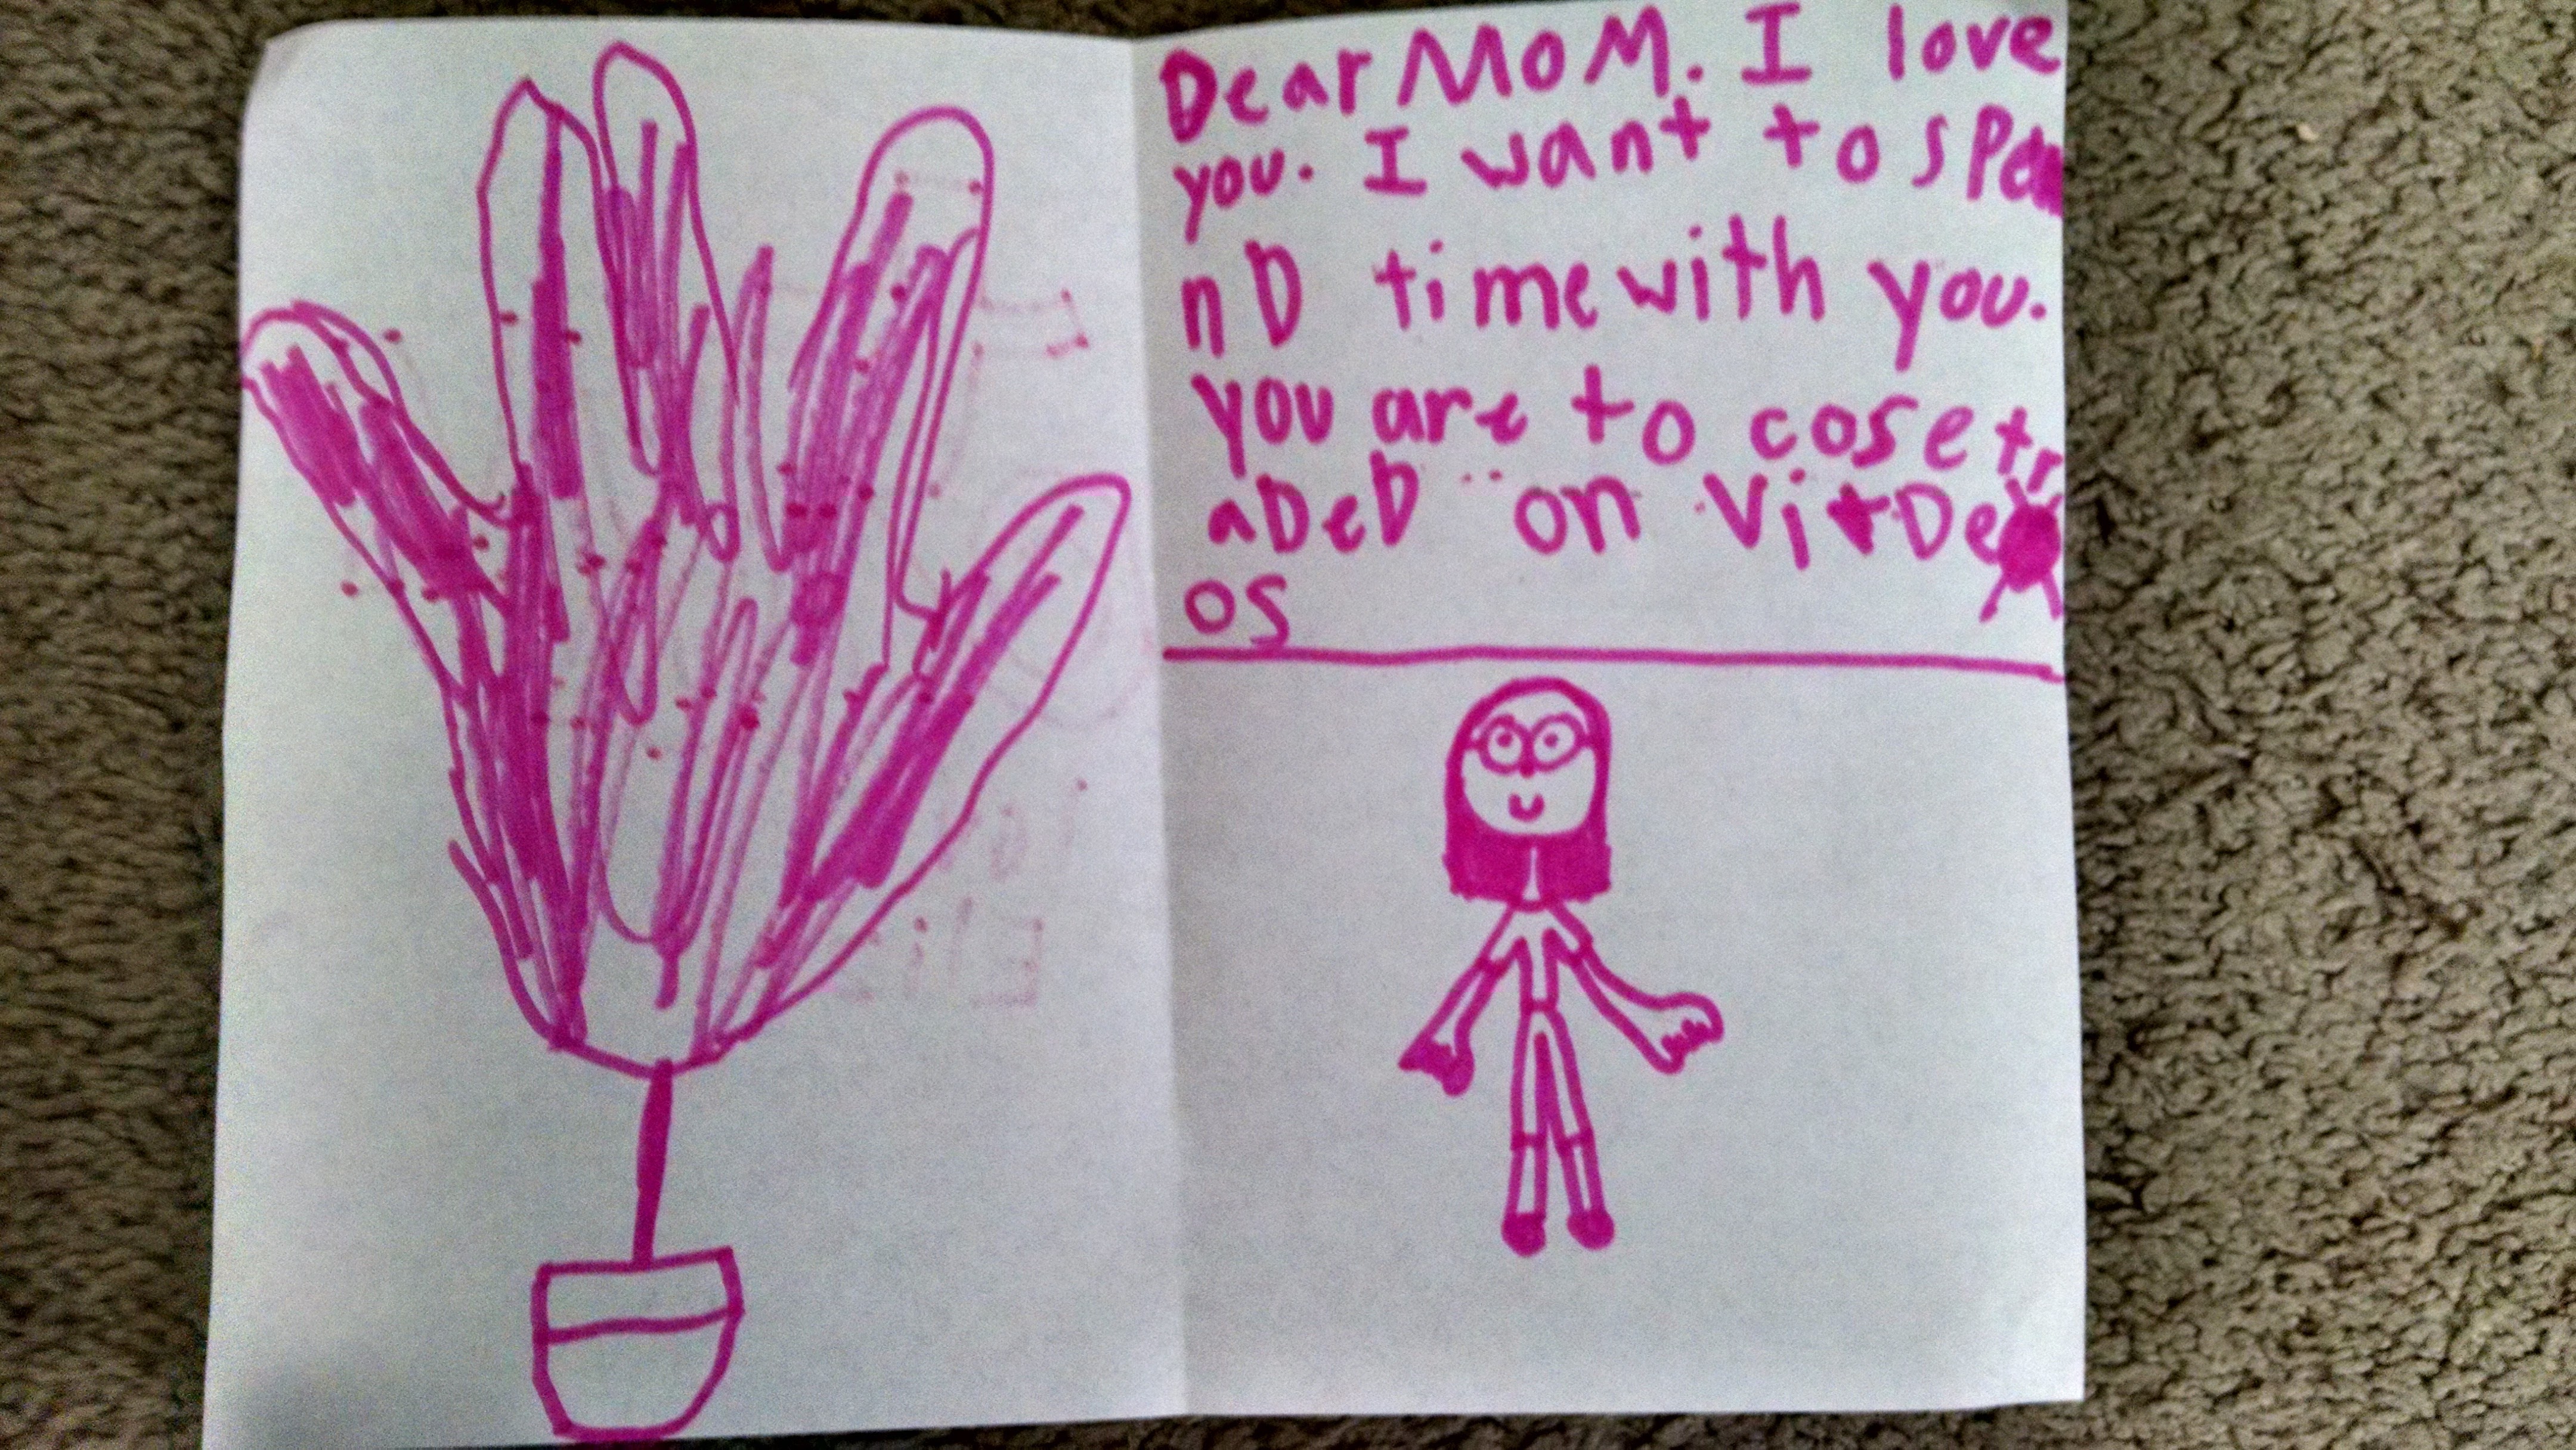 Dear MoM. I love
you. I want to spe
nD time with you.
you are to cose tr
aDeD on vitDe
os